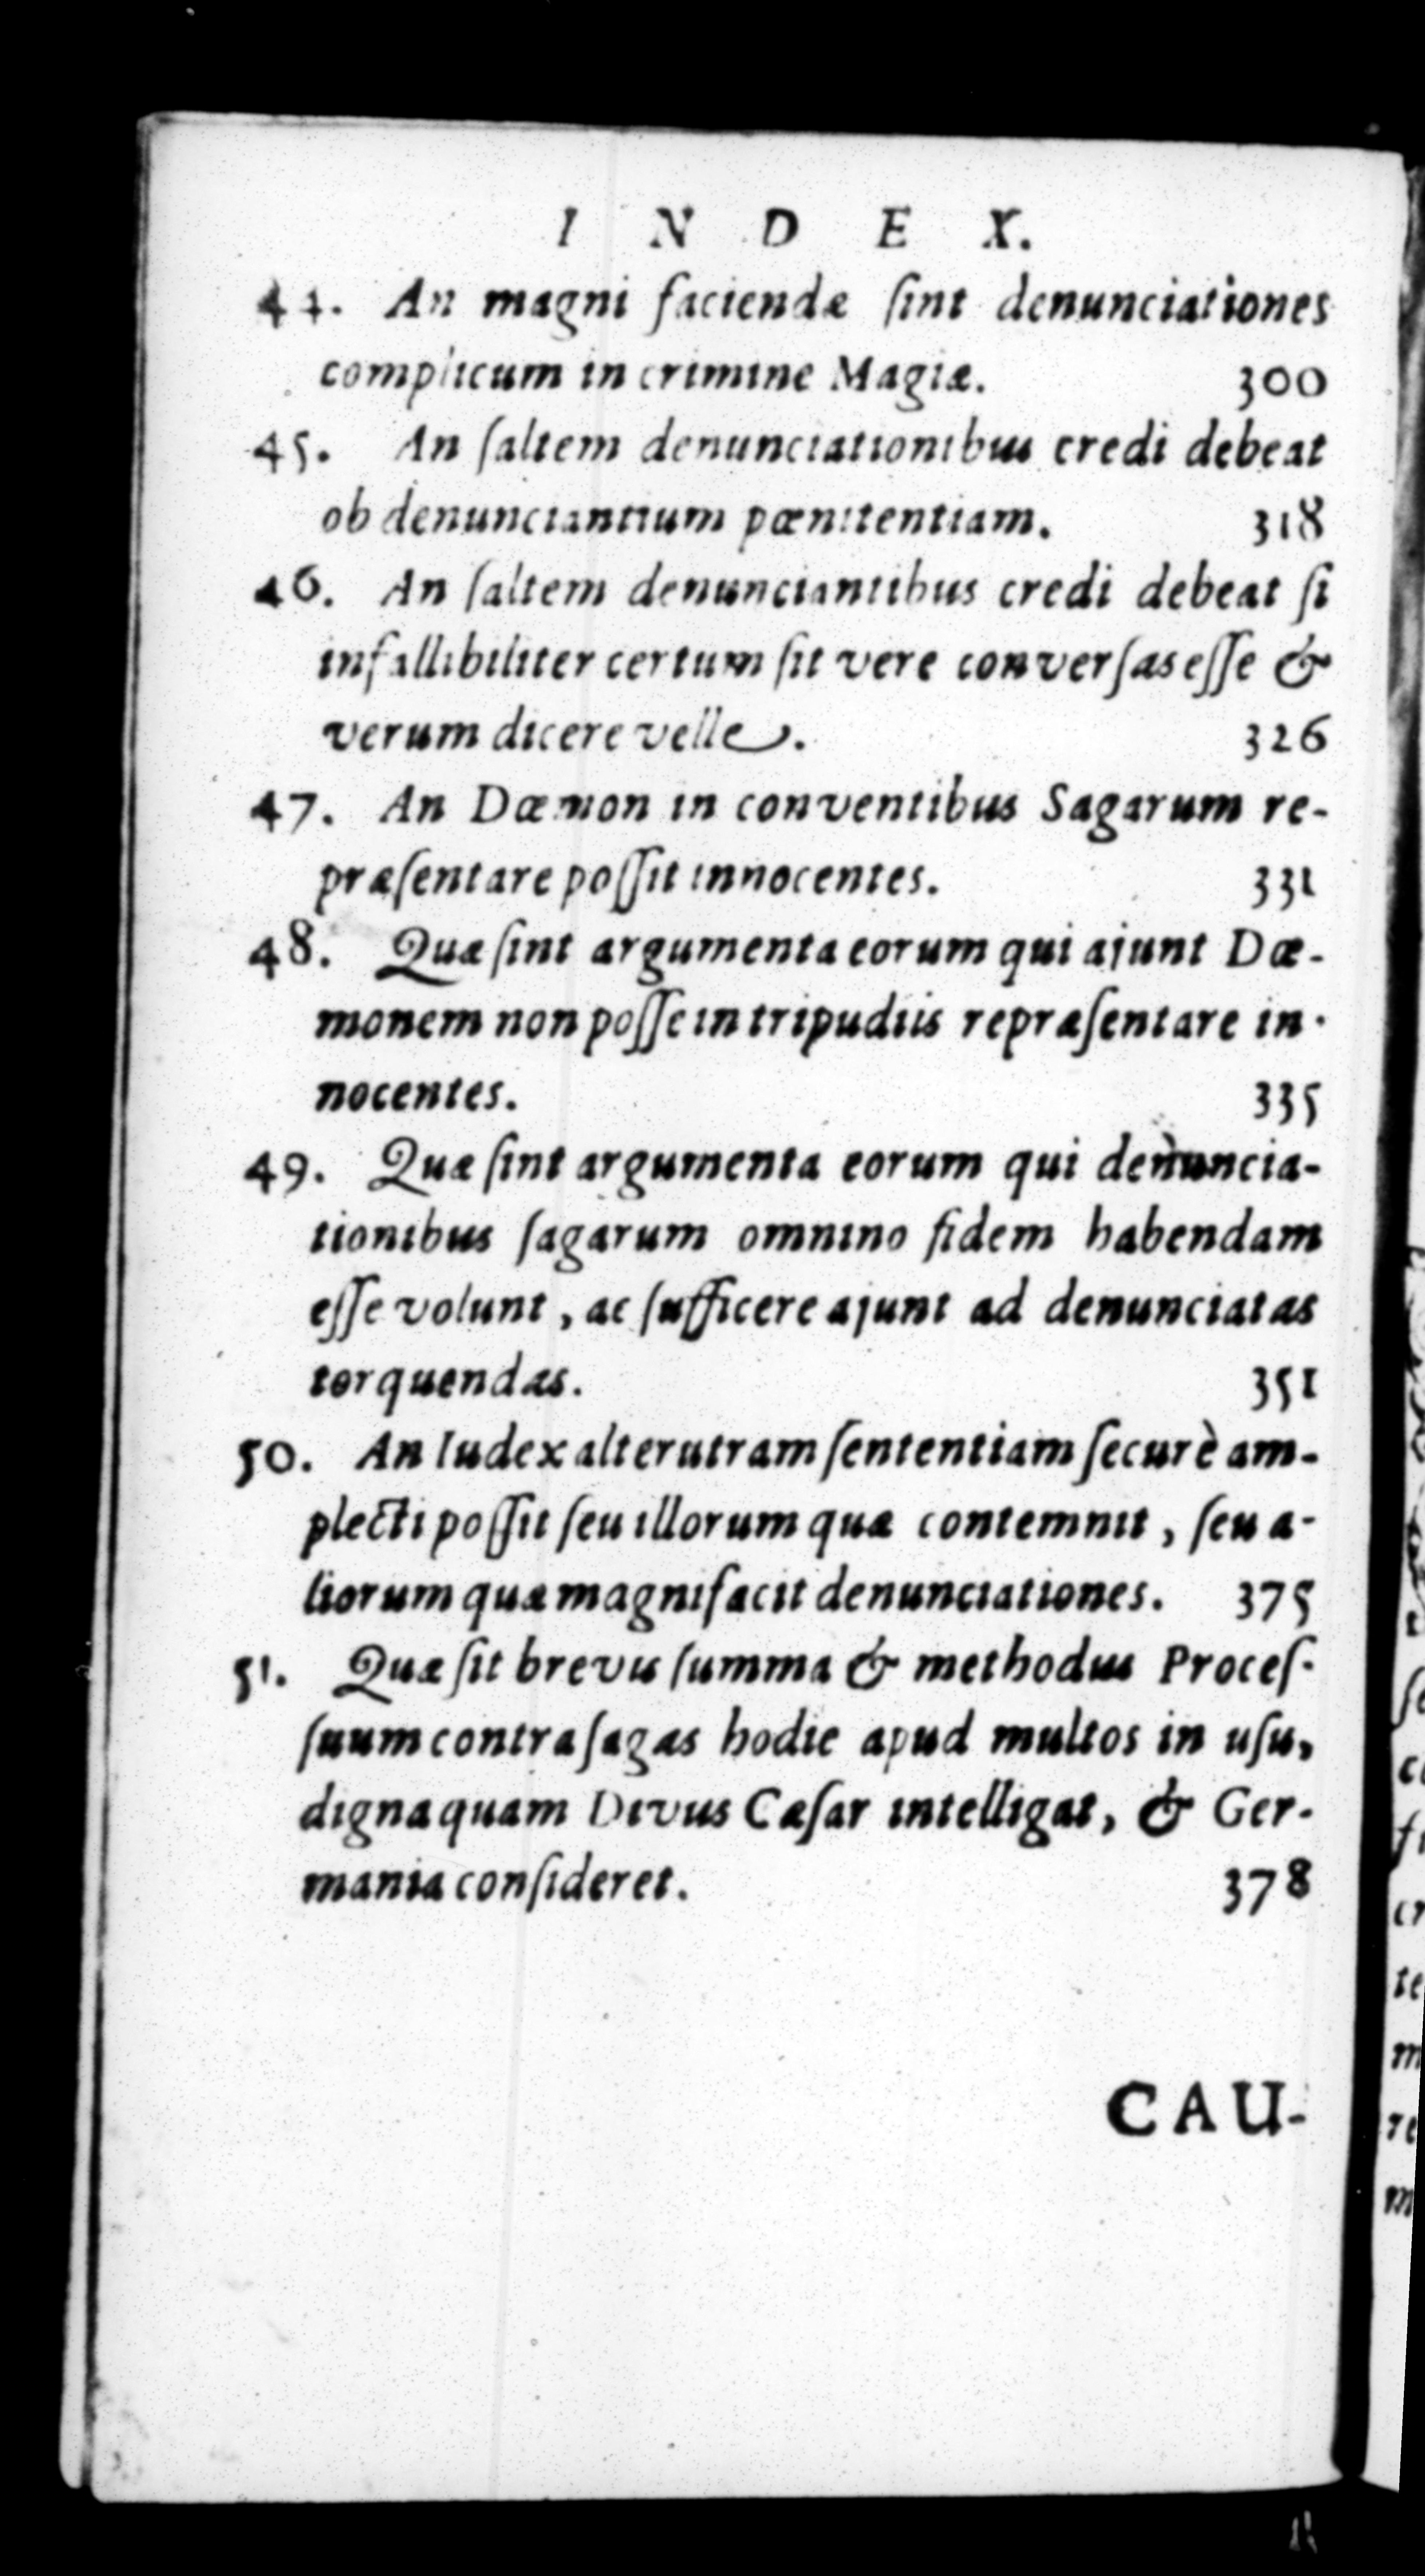 I N D E X.
44. An magni faciendæ ſint denunciationes
complicum in crimine Magiæ. 300
45. An ſaltem denunciationibus credi debeat
ob denunciantium pœnitentiam. 318
46. An ſaltem denunciantibus credi debeat ſi
infallibiliter certum ſit vere converſas eſſe &
verum dicere velle. 326
47. An Dæmon in conventibus Sagarum re-
præſentare poſſit innocentes. 331
48. Quæ ſint argumenta eorum qui ajunt Dæ-
monem non poſſe in tripudiis repræſentare in-
nocentes. 335
49. Quæ ſint argumenta eorum qui denuncia-
tionibus ſagarum omnino fidem habendam
eſſe volunt, ac ſufficere ajunt ad denunciatas
torquendas. 351
50. An Iudex alterutram ſententiam ſecurè am-
plecti poſſit ſeu illorum quæ contemnit, ſeu a-
liorum quæ magnifacit denunciationes. 375
51. Quæ ſit brevis ſumma & methodus Proceſ-
ſuum contra ſagas hodie apud multos in uſu,
digna quam Divus Cæſar intelligat, & Ger-
mania conſideret. 378
CAU-